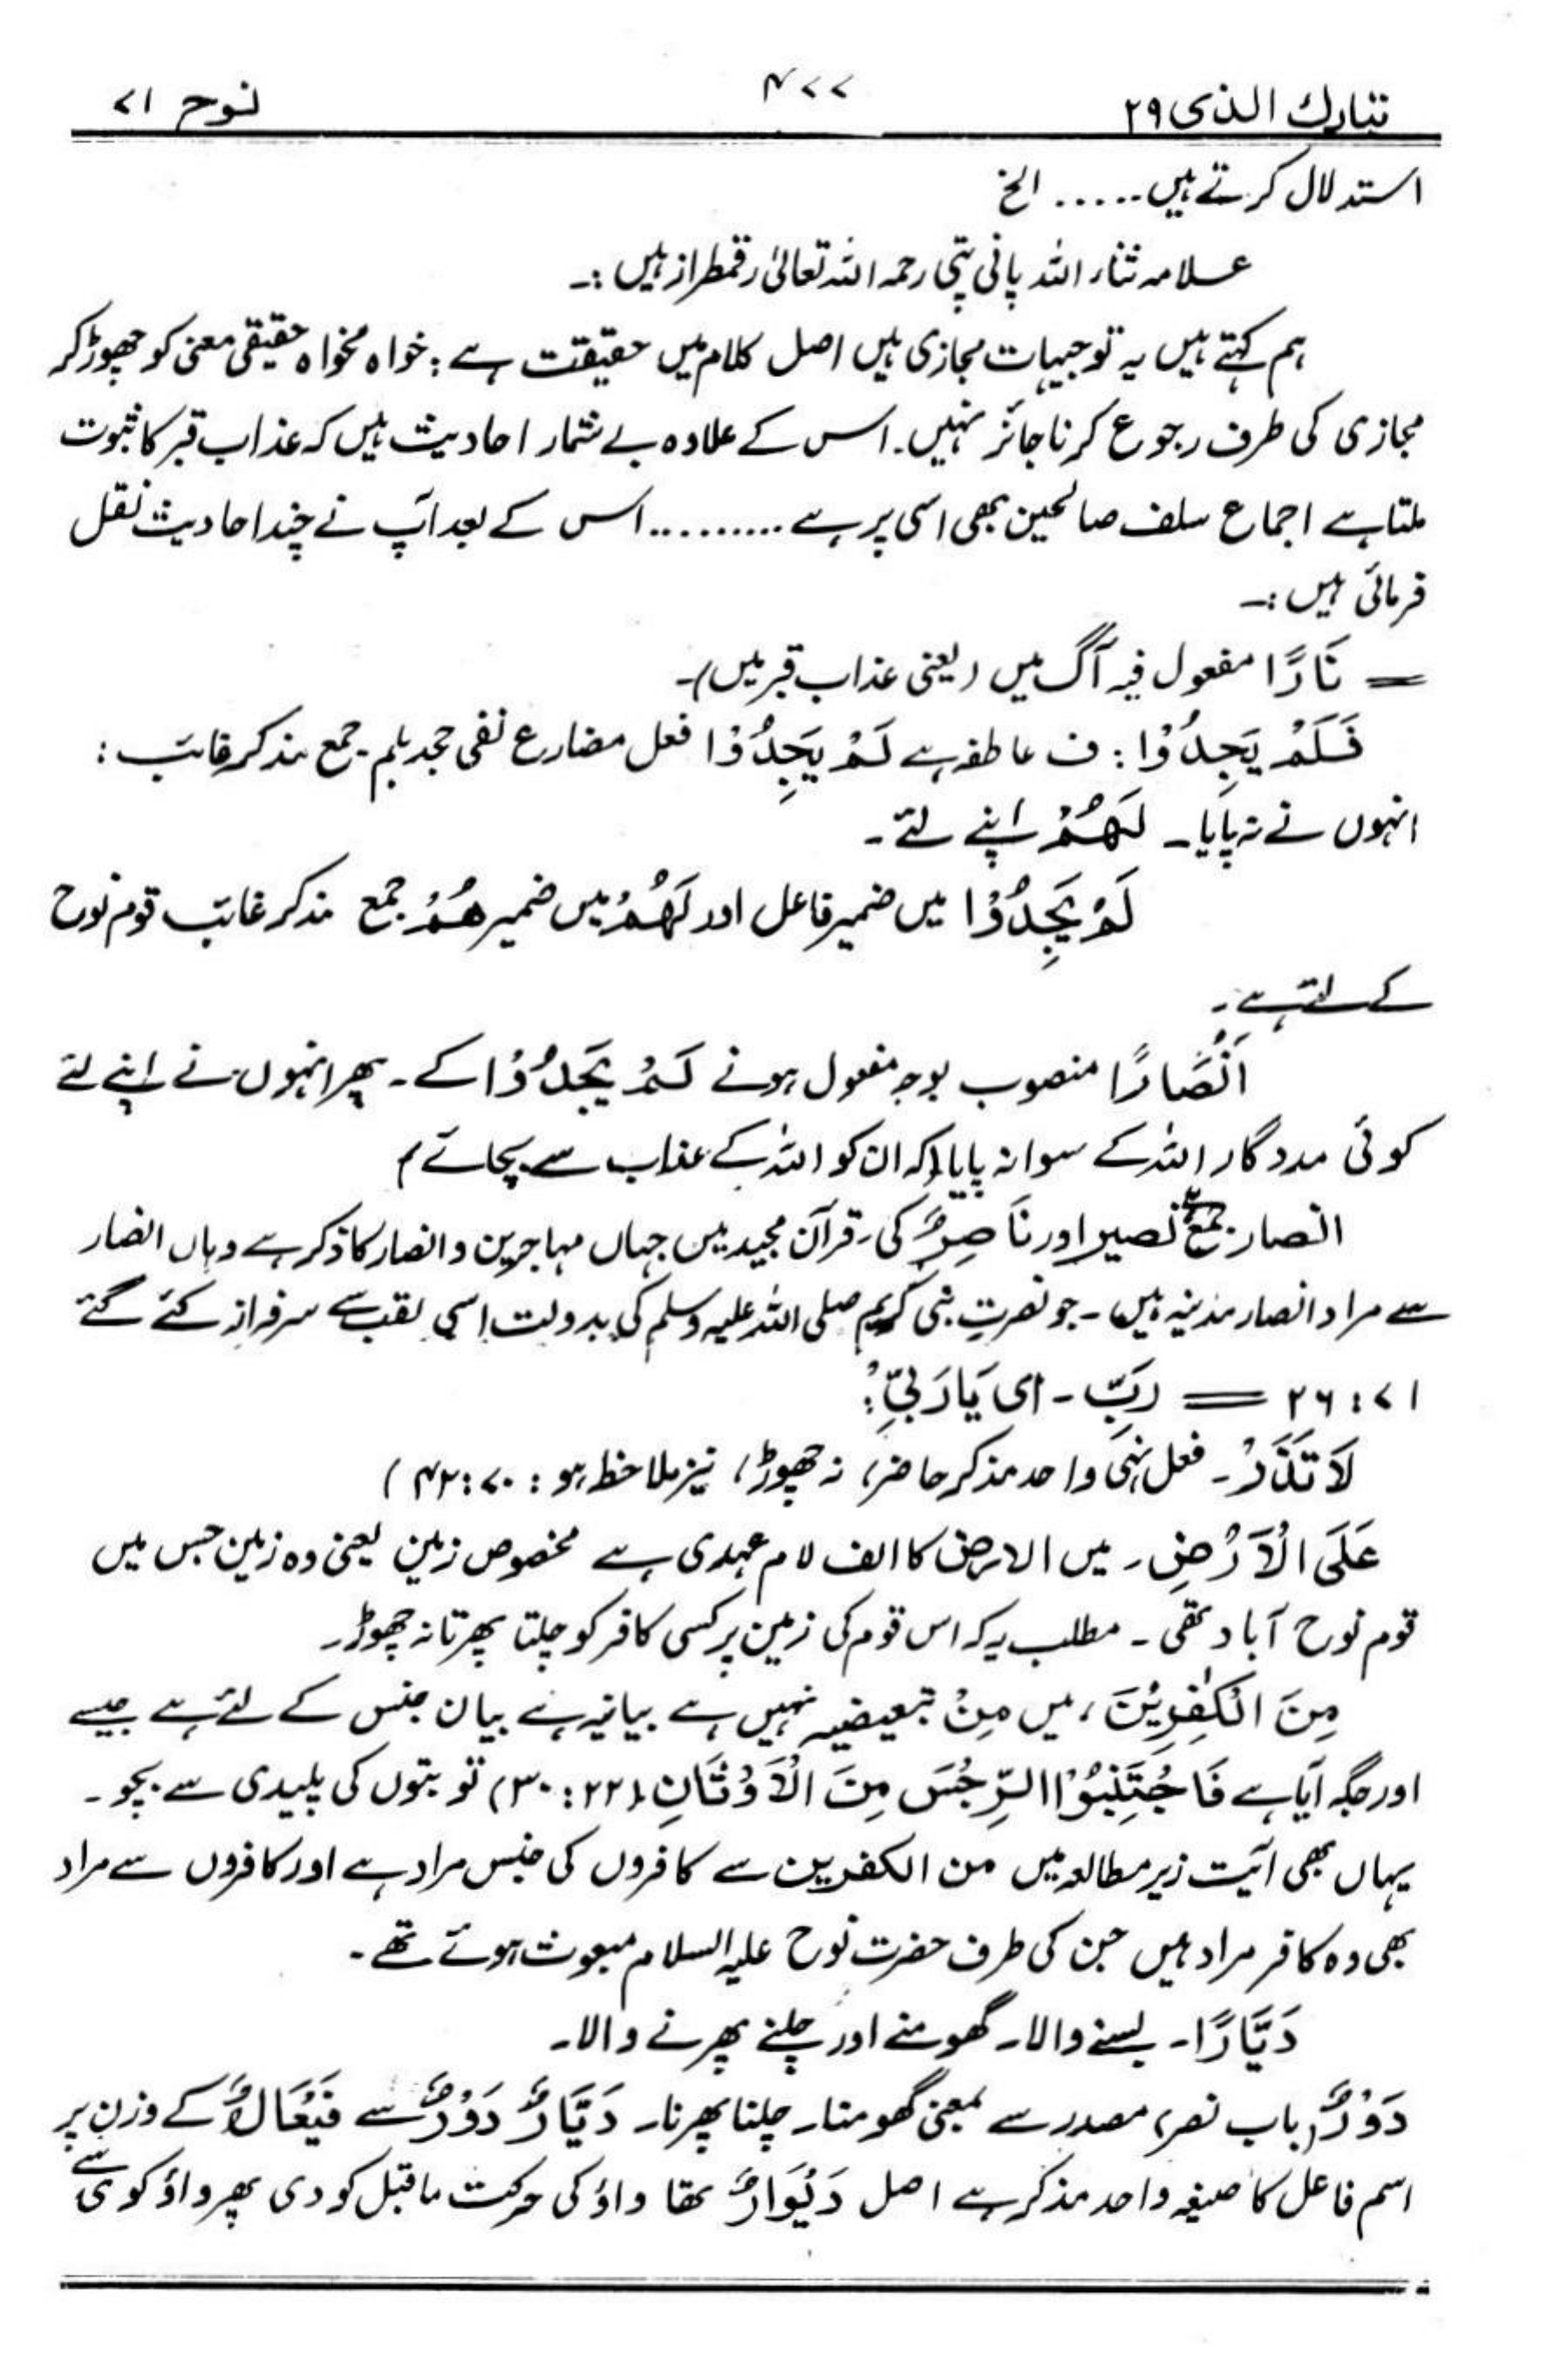 تبارك الذى ٢٩ ۴۷۷ نوح ۷۱
استدلال کرتے ہیں ..... الخ
علامہ ثناء اللہ پانی پتی رحمہ اللہ تعالیٰ رقمطراز ہیں :۔
ہم کہتے ہیں یہ توجیہات مجازی ہیں اصل کلام میں حقیقت ہے : خواہ مخواہ حقیقی معنی کو چھوڑ کر
مجازی کی طرف رجوع کرنا جائز نہیں ۔ اس کے علاوہ بے شمار احادیث ہیں کہ عذاب قبر کا ثبوت
ملتا ہے اجماع سلف صالحین بھی اسی پر ہے .......... اس کے بعد آپ نے چند احادیث نقل
فرمائی ہیں :۔
= نَارًا مفعول فیہ آگ میں (یعنی عذاب قبر میں)۔
فَلَمْ يَجِدُوْا : ف عاطفہ ہے لَمْ يَجِدُوْا فعل مضارع نفی جحد بلم ۔ جمع مذکر غائب :
انہوں نے نہ پایا ۔ لَهُمْ اپنے لئے ۔
لَمْ يَجِدُوْا میں ضمیر فاعل اور لَهُمْ میں ضمیر هُمْ جمع مذکر غائب قوم نوح
کے لئے ہے ۔
اَنْصَارًا منصوب بوجہ مفعول ہونے لَمْ يَجِدُوْا کے ۔ پھر انہوں نے اپنے لئے
کوئی مددگار اللہ کے سوا نہ پایا (کہ ان کو اللہ کے عذاب سے بچاتے)
انصار جمع ہے نصیر اور نَاصِرٌ کی ۔ قرآن مجید میں جہاں مہاجرین و انصار کا ذکر ہے وہاں انصار
سے مراد انصار مدینہ ہیں ۔ جو نصرتِ نبی کریم صلی اللہ علیہ وسلم کی بدولت اسی لقب سے سرفراز کئے گئے
۷۱ : ۲۶ = رَبِّ ۔ ای يَا رَبِّيْ :
لَا تَذَرْ ۔ فعل نہی واحد مذکر حاضر، نہ چھوڑ، نیز ملاحظہ ہو : ۷۰ : ۴۲ )
عَلَى الْاَرْضِ ۔ میں الارض کا الف لام عہدی ہے مخصوص زمین یعنی وہ زمین جس میں
قوم نوح آباد تھی ۔ مطلب یہ کہ اس قوم کی زمین پر کسی کافر کو چلتا پھرتا نہ چھوڑ ۔
مِنَ الْكٰفِرِيْنَ ، میں مِنْ تبعیضیہ نہیں ہے بیانیہ ہے بیان جنس کے لئے ہے جیسے
اور جگہ آیا ہے فَاجْتَنِبُوْا الرِّجْسَ مِنَ الْاَوْثَانِ (۲۲ : ۳۰) تو بتوں کی پلیدی سے بچو ۔
یہاں بھی آیت زیر مطالعہ میں من الکفرین سے کافروں کی جنس مراد ہے اور کافروں سے مراد
بھی وہ کافر مراد ہیں جن کی طرف حضرت نوح علیہ السلام مبعوث ہوئے تھے ۔
دَيَّارًا ۔ بسنے والا ۔ گھومنے اور چلنے پھرنے والا ۔
دَوْرٌ (باب نصر) مصدر سے بمعنی گھومنا ۔ چلنا پھرنا ۔ دَيَّارٌ دَوْرٌ سے فَيْعَالٌ کے وزن پر
اسم فاعل کا صیغہ واحد مذکر ہے اصل دَيْوَارٌ تھا واؤ کی حرکت ماقبل کو دی پھر واؤ کو ی سے